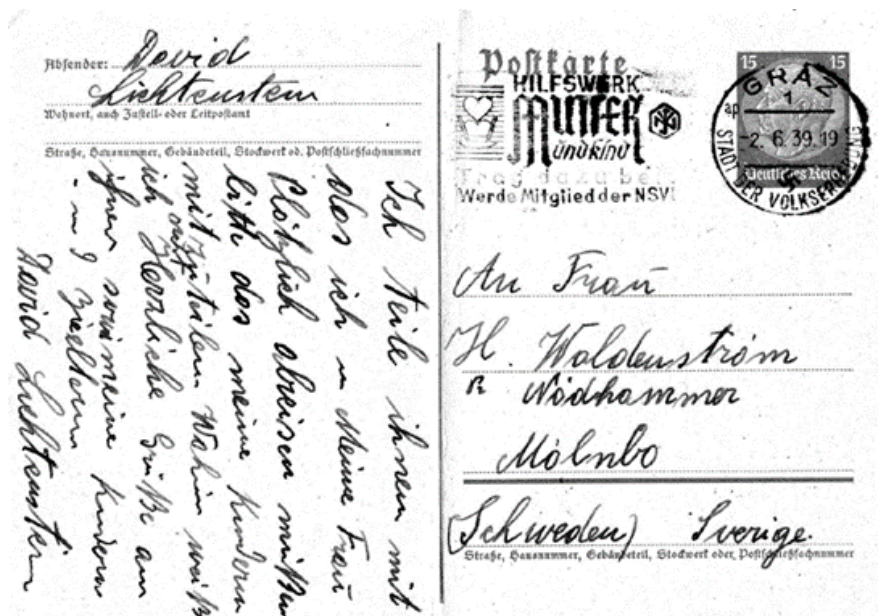 Absender: David
Lichtenstern
Wohnort, auch Zustell- oder Leitpostamt
Straße, Hausnummer, Gebäudeteil, Stockwerk od. Postschließfachnummer
Ich teile ihnen mit
das ich u Meine Frau
Plötzlich abreisen müßen
bitte das meine Kindern
mitzuteilen Wohin weiß
ich Herzliche Grüße an
ihnen sowi meine Kindern
David Lichtenstern
Postkarte
HILFSWERK
MUTTER
und Kind
Trag dazu bei
Werde Mitglied der NSV!
15 15
Deutsches Reich
GRAZ
1
-2. 6. 39. 19
STADT DER VOLKSERHEBUNG
An Frau
H. Waldenström
Nödhammer
Mölnbo
(Schweden) Sverige.
Straße, Hausnummer, Gebäudeteil, Stockwerk oder Postschließfachnummer